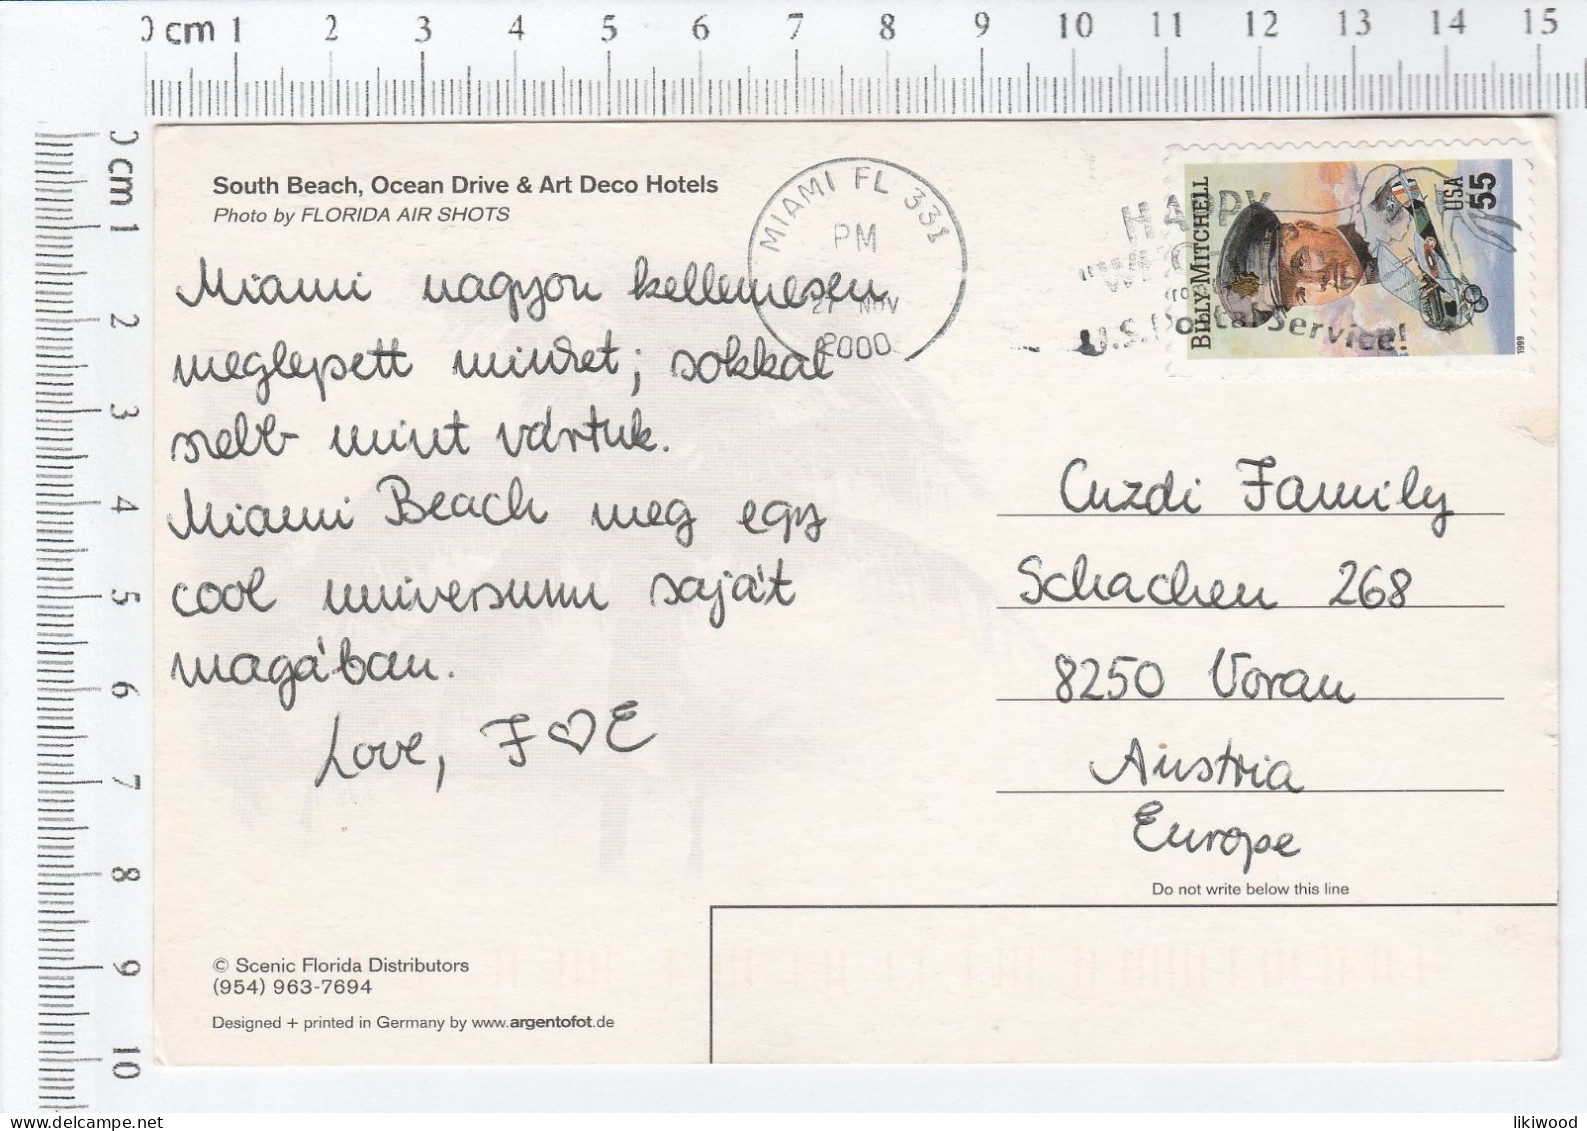 0 cm 1 2 3 4 5 6 7 8 9 10 11 12 13 14 15
0 cm 1 2 3 4 5 6 7 8 9 10
South Beach, Ocean Drive & Art Deco Hotels
Photo by FLORIDA AIR SHOTS
MIAMI FL 331
PM
27 NOV
2000
HAPPY
U.S. Postal Service!
BILLY MITCHELL
USA
55
1999
Miami nagyon kellemesen
meglepett minket; sokkal
szebb mint vártuk.
Miami Beach meg egy
cool universum saját
magában.
Love, F♡E
Cuzdi Family
Schachen 268
8250 Vorau
Austria
Europe
Do not write below this line
© Scenic Florida Distributors
(954) 963-7694
Designed + printed in Germany by www.argentofot.de
likiwood